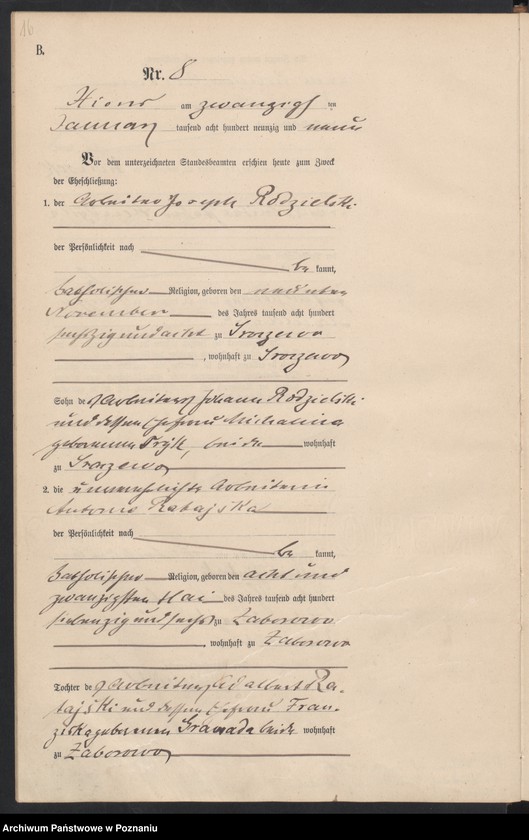 16
B.
Nr. 8
Xions am zwanzigst ten
Januar tausend acht hundert neunzig und neun
Vor dem unterzeichneten Standesbeamten erschien heute zum Zweck
der Eheschließung:
1. der Arbeiter Joseph Rodzielski
der Persönlichkeit nach
be kannt,
katholischer Religion, geboren den neunten
November des Jahres tausend acht hundert
sechszig und acht zu
, wohnhaft zu
Sohn des Arbeiters Johann Rodzielski
und dessen Ehefrau Michalina
geborenen beide wohnhaft
zu
2. die unverehelichte Arbeiterin
Antonie Ratajska
der Persönlichkeit nach
be kannt,
katholischer Religion, geboren den acht und
zwanzigsten Mai des Jahres tausend acht hundert
siebenzig und sechs zu Zaborowo
, wohnhaft zu Zaborowo
Tochter des Arbeiters Adalbert Ra-
tajski und dessen Ehefrau Fran-
ziska geborenen beide wohnhaft
zu Zaborowo
Archiwum Państwowe w Poznaniu